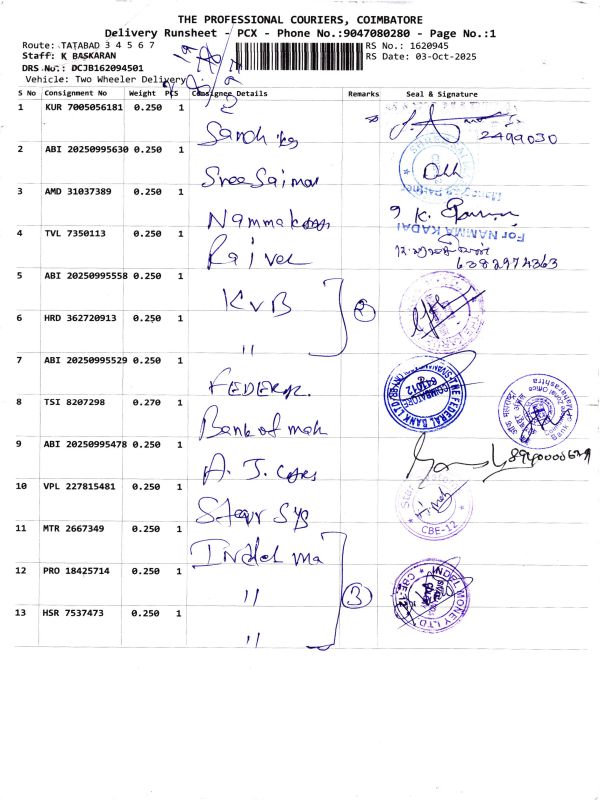 THE PROFESSIONAL COURIERS, COIMBATORE
Delivery Runsheet - PCX - Phone No.:9047080280 - Page No.:1
Route: TATABAD 3 4 5 6 7
RS No.: 1620945
Staff: K BASKARAN
RS Date: 03-Oct-2025
DRS No.: DCJB162094501
Vehicle: Two Wheeler Delivery
S No Consignment No Weight PCS Consignee Details Remarks Seal & Signature
1 KUR 7005056181 0.250 1
2499030
2 ABI 20250995630 0.250 1 Sree Sai
3 AMD 31037389 0.250 1 Namma K.
For NAMMA KADAI
4 TVL 7350113 0.250 1
6382974363
5 ABI 20250995558 0.250 1 KVB
2
6 HRD 362720913 0.250 1 "
7 ABI 20250995529 0.250 1 FEDERAL
THE FEDERAL BANK LTD
COIMBATORE
641012
8 TSI 8207298 0.270 1 Bank of mah
9 ABI 20250995478 0.250 1 A. J.
10 VPL 227815481 0.250 1 Sys
CBE-12
11 MTR 2667349 0.250 1 Indel ma
12 PRO 18425714 0.250 1 "
3
INDEL MONEY LTD
CBE-12
13 HSR 7537473 0.250 1 "